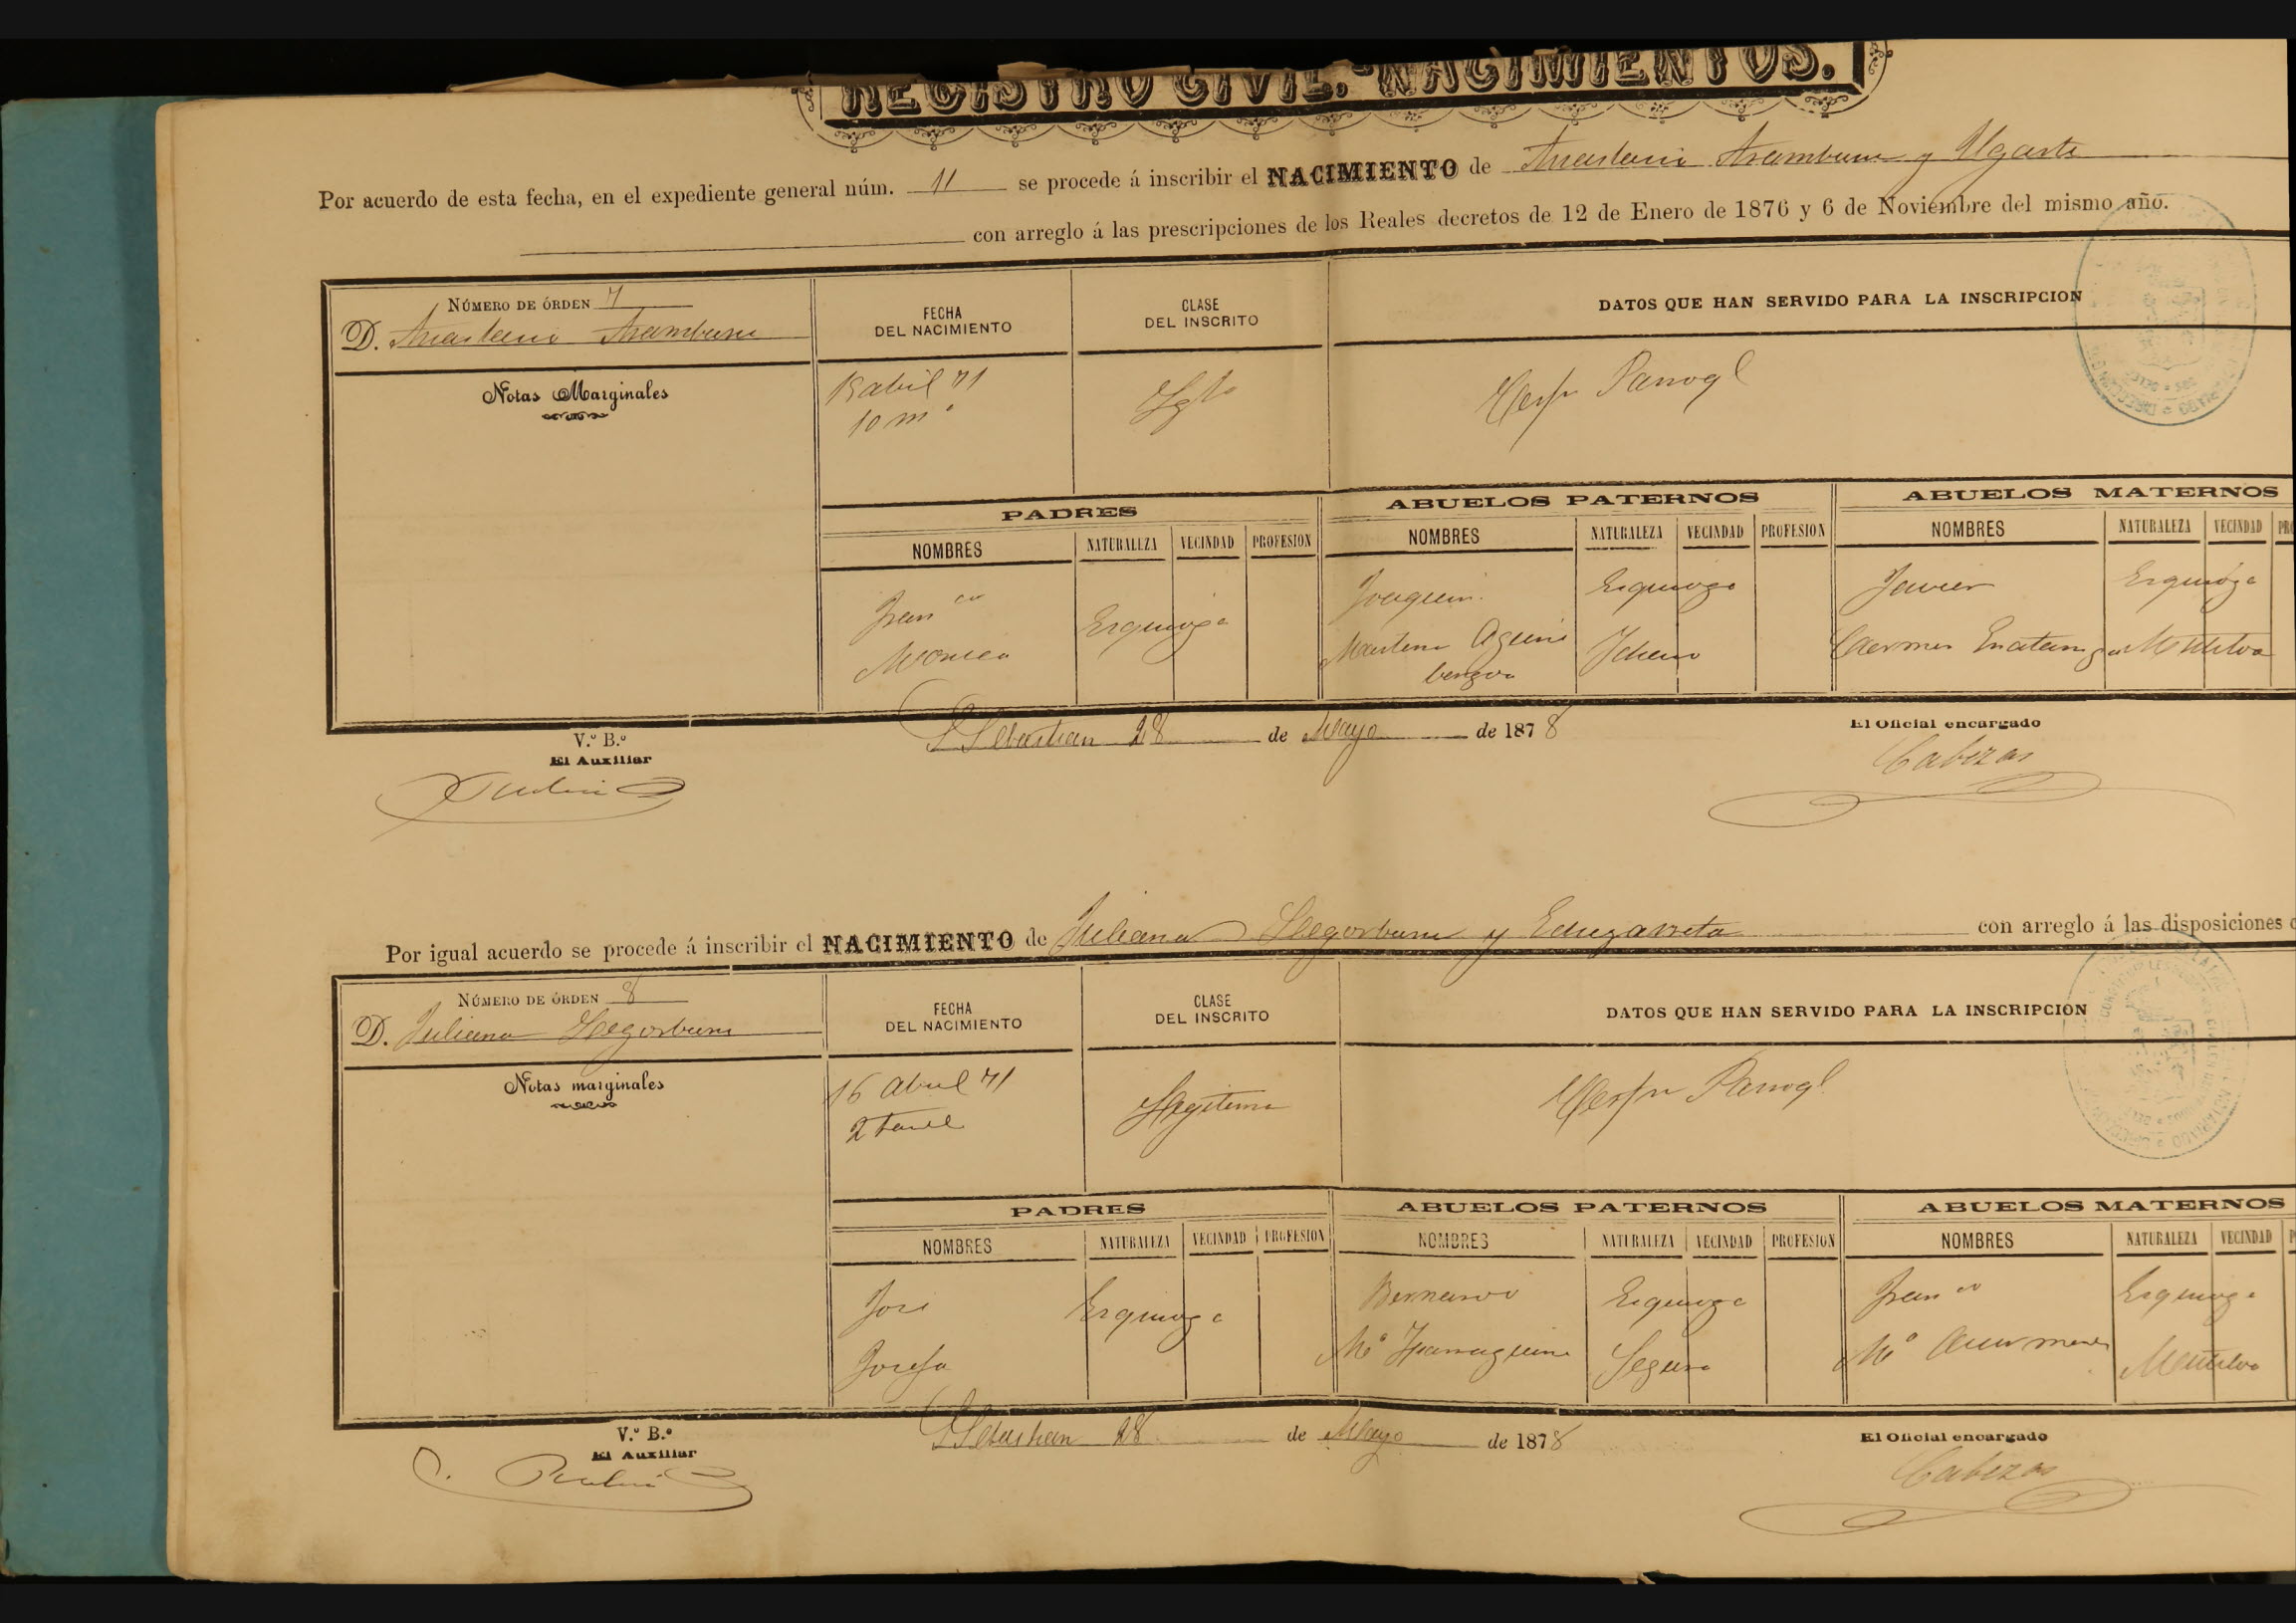 REGISTRO CIVIL.-NACIMIENTOS.
Por acuerdo de esta fecha, en el expediente general núm. 11 se procede á inscribir el NACIMIENTO de Anastasio Aramburu y Ugarte
con arreglo á las prescripciones de los Reales decretos de 12 de Enero de 1876 y 6 de Noviembre del mismo año.
NÚMERO DE ÓRDEN 7
D. Anastasio Aramburu
FECHA
DEL NACIMIENTO
CLASE
DEL INSCRITO
DATOS QUE HAN SERVIDO PARA LA INSCRIPCION
Notas Marginales
15 abril 71
10 mª
Lgto
Parroql
PADRES
ABUELOS PATERNOS
ABUELOS MATERNOS
NOMBRES NATURALEZA VECINDAD PROFESION NOMBRES NATURALEZA VECINDAD PROFESION NOMBRES NATURALEZA VECINDAD
Franco Ezquioga Joaquin Ezquioga Javier Ezquioga
Monica Mutiloa
S Sebastian 28 de Mayo de 1878
V.º B.º
El Auxiliar
El Oficial encargado
Cabezas
Por igual acuerdo se procede á inscribir el NACIMIENTO de Juliana y con arreglo á las disposiciones
NÚMERO DE ÓRDEN 8
D. Juliana
FECHA
DEL NACIMIENTO
CLASE
DEL INSCRITO
DATOS QUE HAN SERVIDO PARA LA INSCRIPCION
Notas marginales
16 abril 71
2 tarde
Legitima
Parroql
PADRES
ABUELOS PATERNOS
ABUELOS MATERNOS
NOMBRES NATURALEZA VECINDAD PROFESION NOMBRES NATURALEZA VECINDAD PROFESION NOMBRES NATURALEZA VECINDAD
José Ezquioga Bernardo Ezquioga Franco Ezquioga
Josefa Mª Segura Mª Mutiloa
S Sebastian 28 de Mayo de 1878
V.º B.º
El Auxiliar
El Oficial encargado
Cabezas